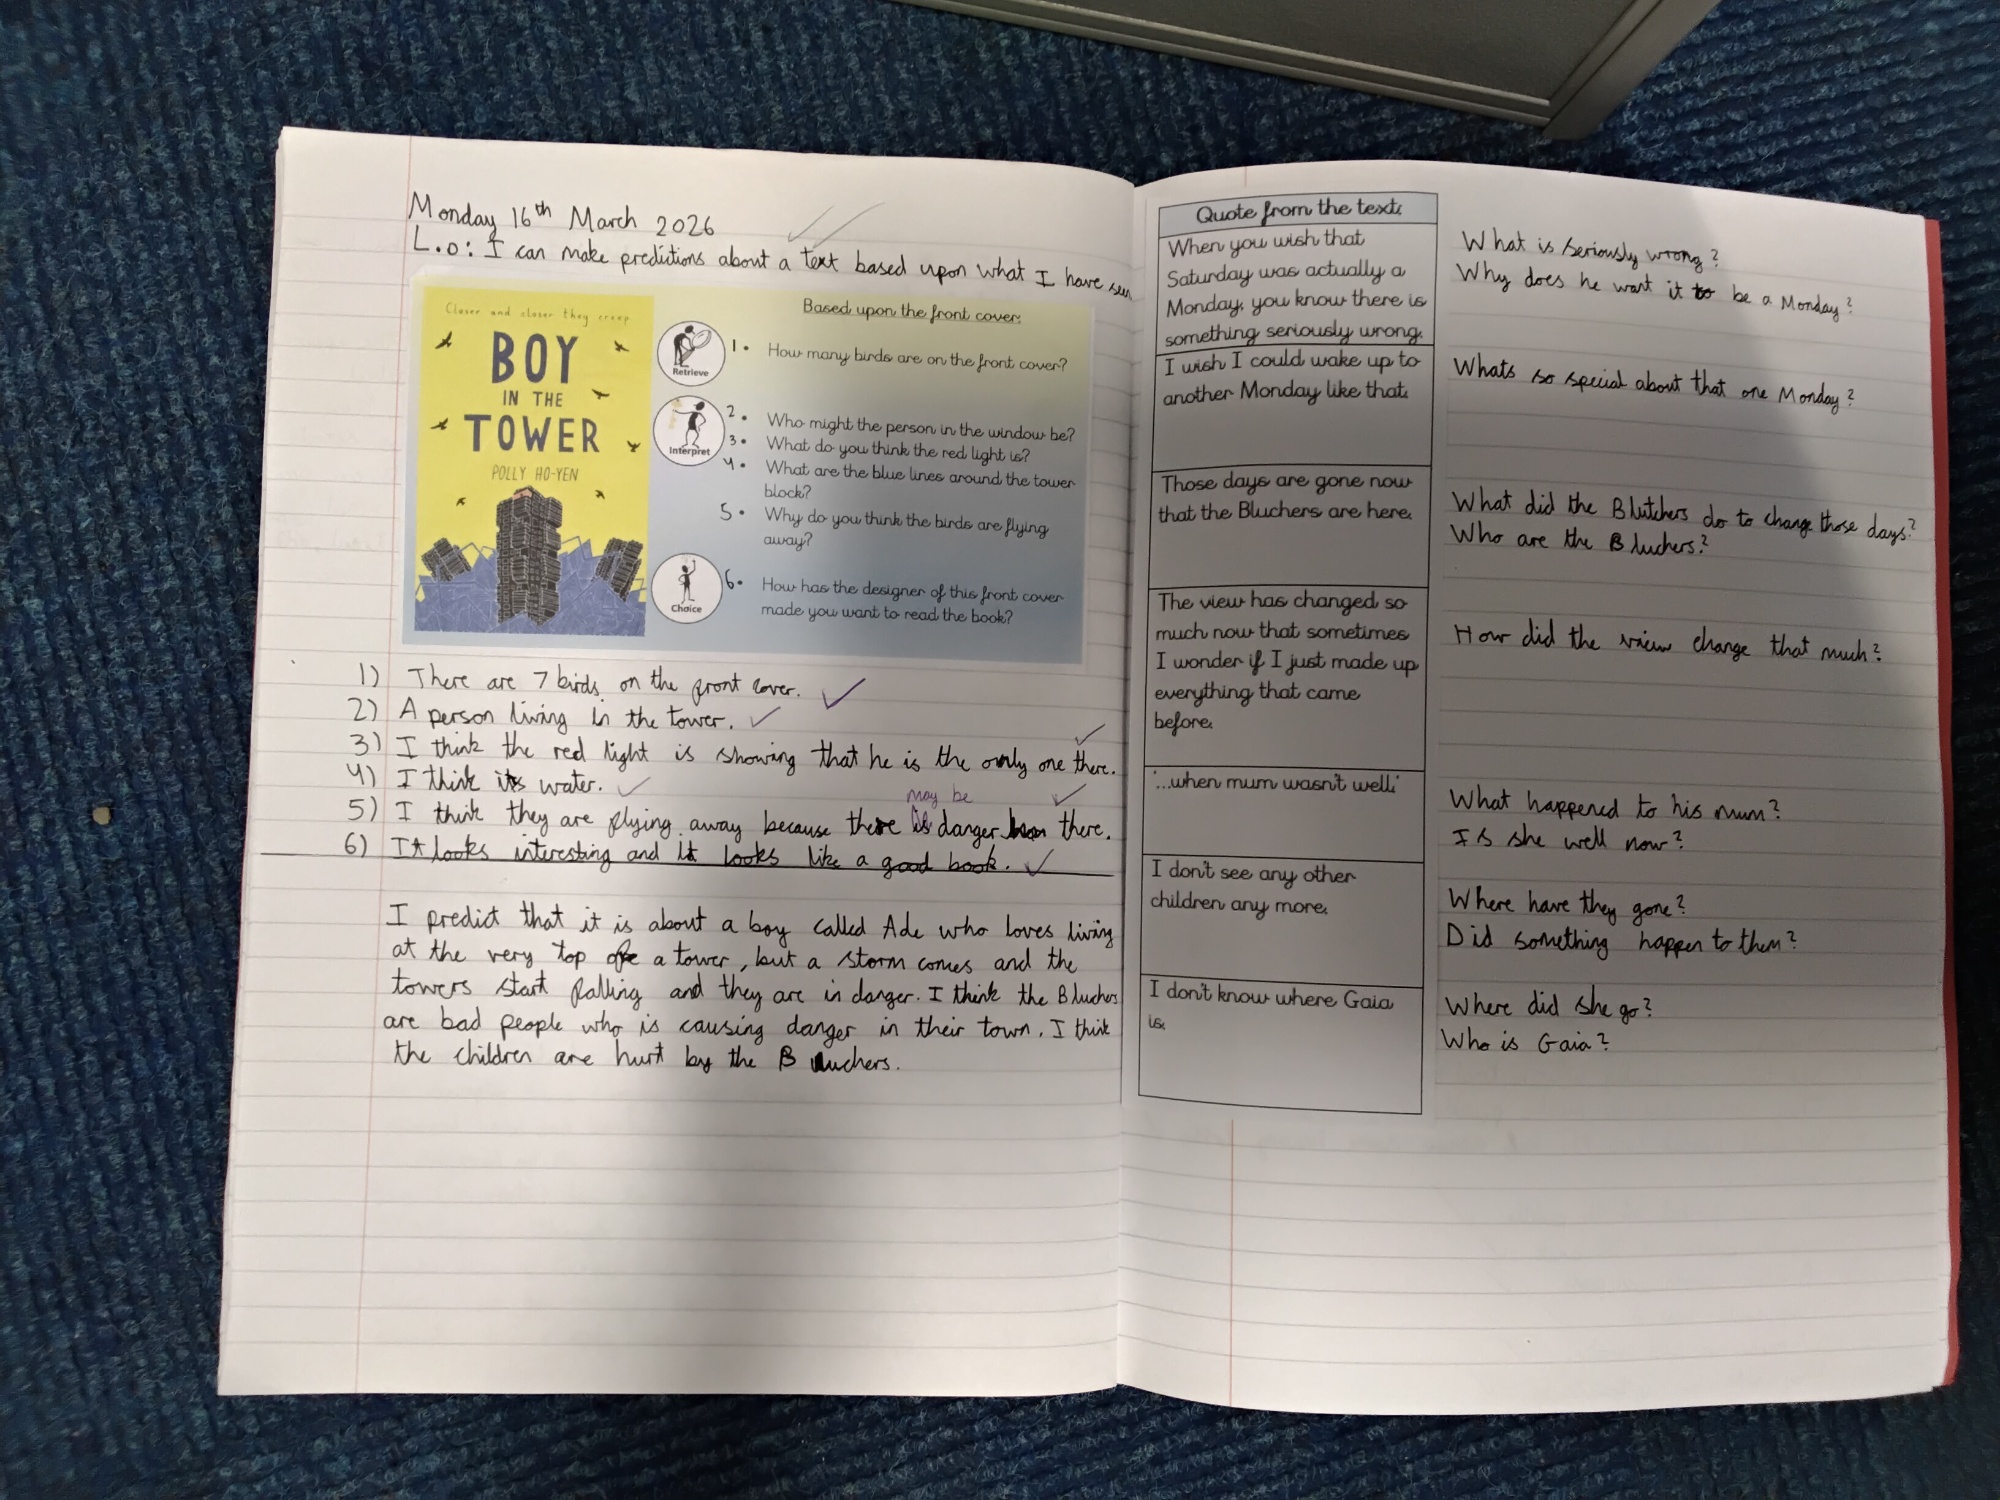 Monday 16th March 2026
L.o: I can make predictions about a text based upon what I have seen
Closer and closer they creep
BOY
IN THE
TOWER
POLLY HO-YEN
Based upon the front cover:
Retrieve
1. How many birds are on the front cover?
Interpret
2. Who might the person in the window be?
3. What do you think the red light is?
4. What are the blue lines around the tower
block?
5. Why do you think the birds are flying
away?
Choice
6. How has the designer of this front cover
made you want to read the book?
1) There are 7 birds on the front cover.
2) A person living in the tower.
3) I think the red light is showing that he is the only one there.
4) I think its water.
may be
5) I think they are flying away because there is danger there.
6) It looks interesting and it looks like a good book.
I predict that it is about a boy called Ade who loves living
at the very top of a tower, but a storm comes and the
towers start falling and they are in danger. I think the Bluchers
are bad people who is causing danger in their town. I think
the children are hurt by the Bluchers.
Quote from the text:
When you wish that
Saturday was actually a
Monday, you know there is
something seriously wrong.
What is seriously wrong?
Why does he want it to be a Monday?
I wish I could wake up to
another Monday like that.
Whats so special about that one Monday?
Those days are gone now
that the Bluchers are here.
What did the Blutchers do to change those days?
Who are the Bluchers?
The view has changed so
much now that sometimes
I wonder if I just made up
everything that came
before.
How did the view change that much?
'...when mum wasn't well.'
What happened to his mum?
Is she well now?
I don't see any other
children any more.
Where have they gone?
Did something happen to them?
I don't know where Gaia
is.
Where did she go?
Who is Gaia?